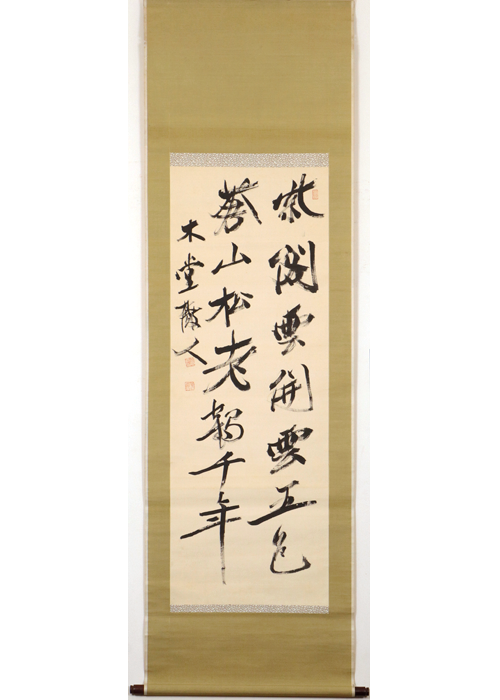 紫閣雲開雲五色
蒼山松老鶴千年
木堂散人